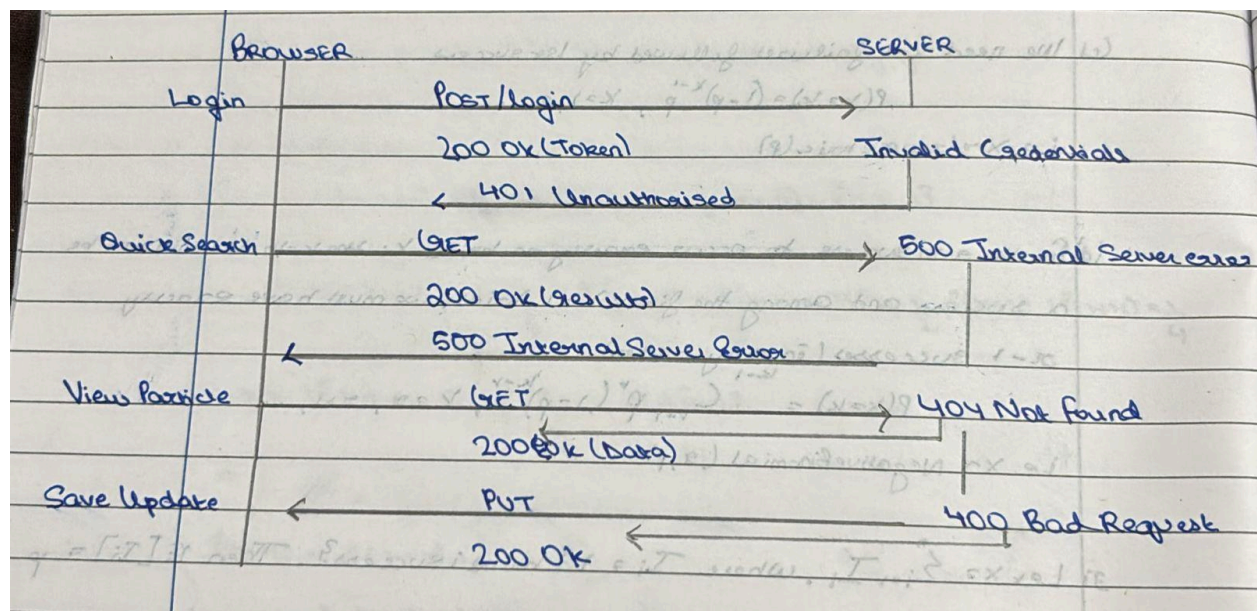 BROWSER SERVER
Login POST/login
200 OK (Token) Invalid Credentials
401 Unauthorised
Quick Search GET 500 Internal Server error
200 OK (results)
500 Internal Server Error
View Particle GET 404 Not Found
200 OK (Data)
Save Update PUT 400 Bad Request
200 OK